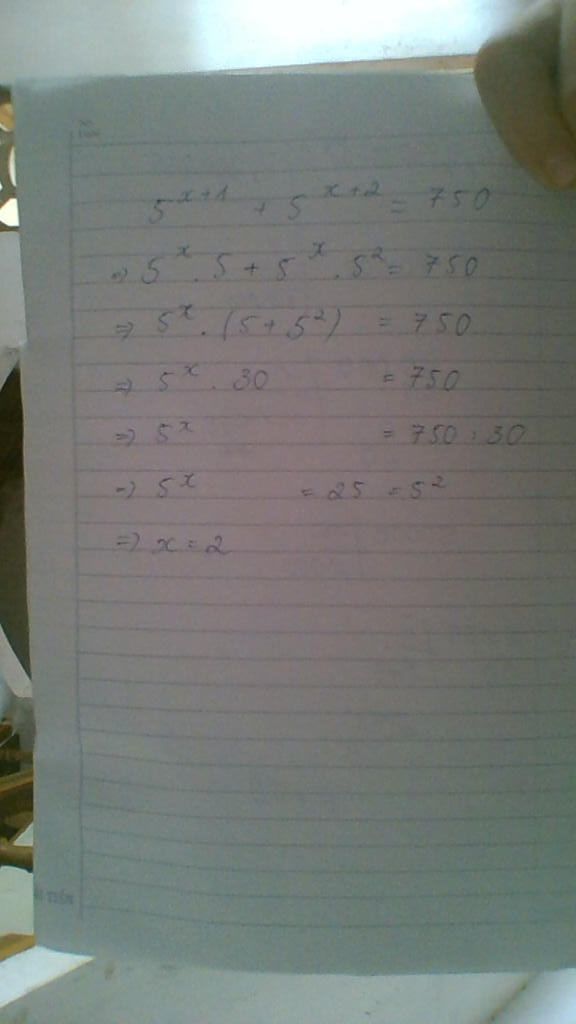 5^{x+1} + 5^{x+2} = 750
=> 5^x . 5 + 5^x . 5^2 = 750
=> 5^x . (5 + 5^2) = 750
=> 5^x . 30 = 750
=> 5^x = 750 : 30
=> 5^x = 25 = 5^2
=> x = 2